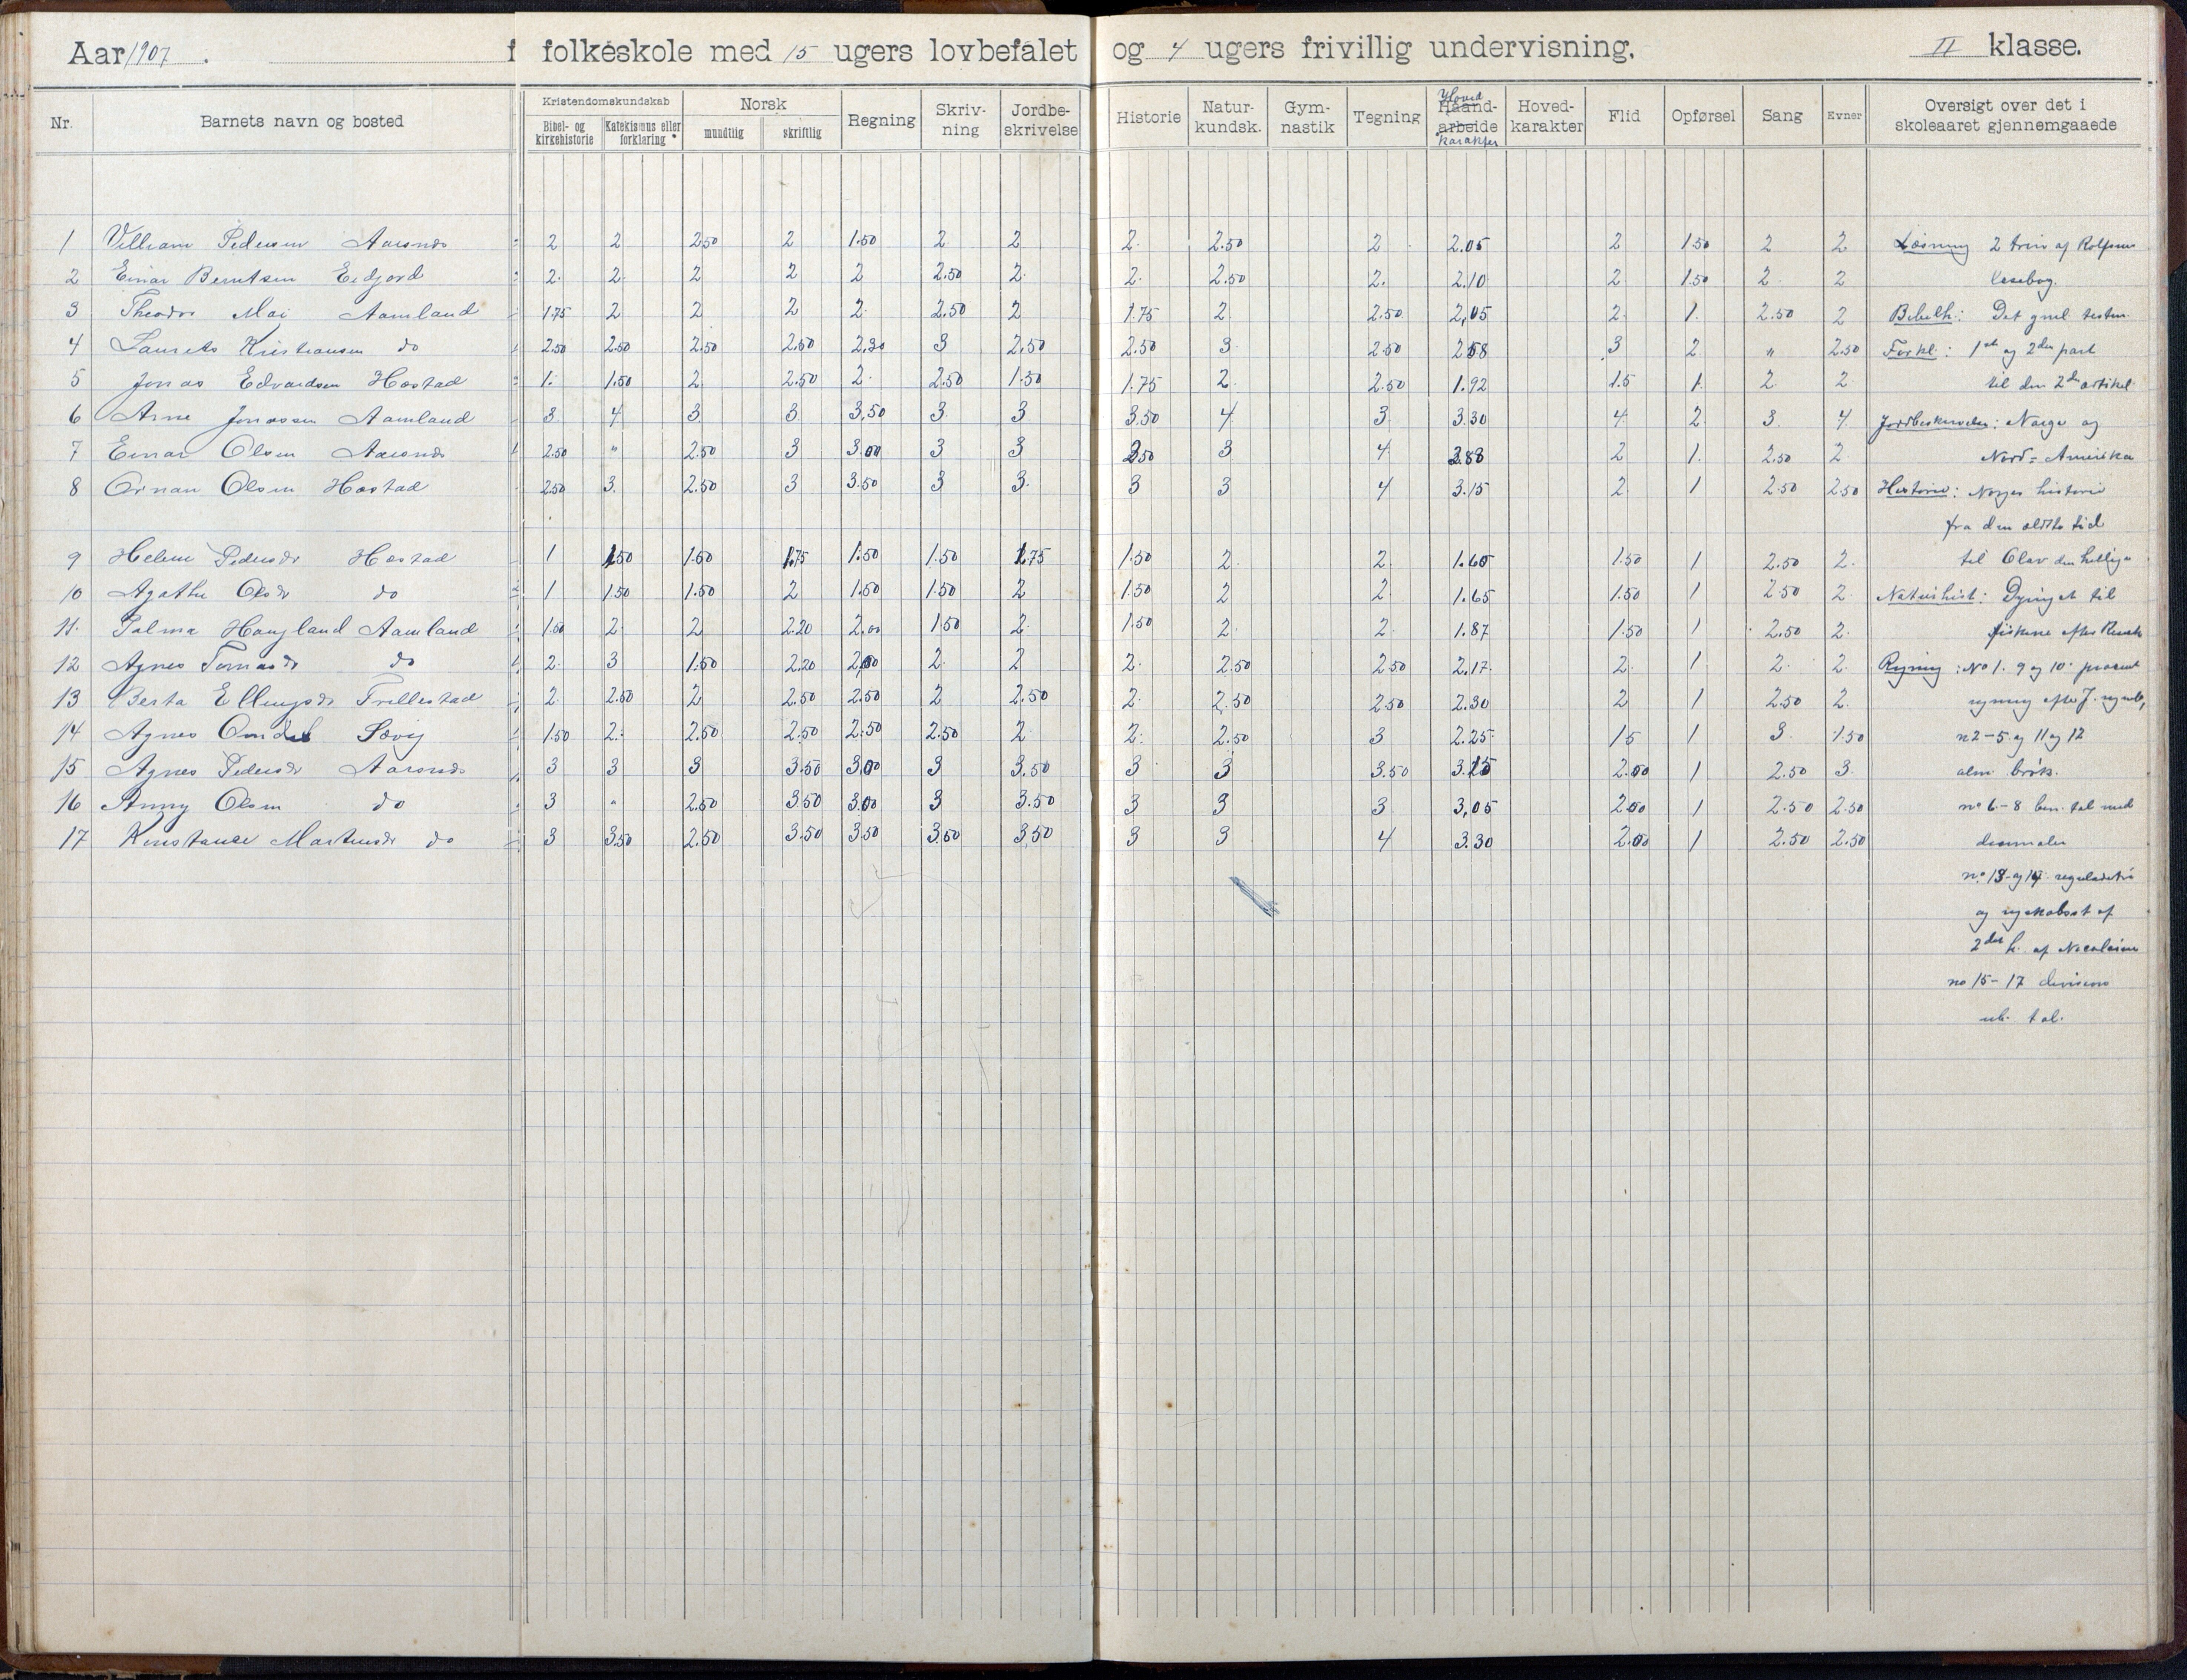 Aar 1907. f folkeskole med 15 ugers lovbefalet og 4 ugers frivillig undervisning. II klasse.
Nr. Barnets navn og bosted Kristendomskundskab Norsk Regning Skriv-ning Jordbe-skrivelse Historie Natur-kundsk. Gym-nastik Tegning Haand-arbeide Hoved-karakter Hoved-karakter Flid Opførsel Sang Evner Oversigt over det i skoleaaret gjennemgaaede
Bibel- og kirkehistorie Katekismus eller forklaring mundtlig skriftlig
1 Villiam Pedersen Aarsnds 2 2 2.50 2 1.50 2 2 2 2.50 2 2.05 2 1.50 2 2 Læsning 2 trin af Rolfsens
2 Einar Berntsen Eidjord 2 2 2 2 2 2.50 2 2 2.50 2 2.10 2 1.50 2 2 læsebog.
3 Theodor Moi Aamland 1.75 2 2 2 2 2.50 2 1.75 2 2.50 2,05 2 1 2.50 2 Bibelh: Det gml testm.
4 Laurits Kristiansen do 2.50 2.50 2.50 2.50 2.30 3 2.50 2.50 3 2.50 2.58 3 2 " 2.50 Forkl: 1ste og 2den part
5 Jonas Edvardsen Hæstad 1 1.50 2 2.50 2 2.50 1.50 1.75 2 2.50 1.92 1.5 1 2 2 til den 2de artikel
6 Arne Jonassen Aamland 3 4 3 3 3.50 3 3 3.50 4 3 3.30 4 2 3 4 Jordbeskrivelse: Norge og
7 Einar Olsen Aarsnds 2.50 " 2.50 3 3.00 3 3 2.50 3 4 2.88 2 1 2.50 2 Nord-Amerika
8 Ornan Olsen Hæstad 2.50 3 2.50 3 3.50 3 3 3 3 4 3.15 2 1 2.50 2.50 Historie: Norges historie
fra den ældste tid
9 Helene Pedersdr Hæstad 1 1.50 1.50 1.75 1.50 1.50 1.75 1.50 2 2 1.65 1.50 1 2.50 2 til Olav den hellige
10 Agathe Olsdr do 1 1.50 1.50 2 1.50 1.50 2 1.50 2 2 1.65 1.50 1 2.50 2 Naturhist: Dyriget til
11 Palma Haugland Aamland 1.50 2 2 2.20 2.00 1.50 2 1.50 2 2 1.87 1.50 1 2.50 2 fiskene efter
12 Agnes Tomasdr do 2 3 1.50 2.20 2.00 2 2 2 2.50 2.50 2.17 2 1 2 2 Regning: No 1. 9 og 10 procent
13 Berta Ellingsdr Trellestad 2 2.50 2 2.50 2.50 2 2.50 2 2.50 2.50 2.30 2 1 2.50 2 regning efter J.
14 Agnes Omdal Søvig 1.50 2 2.50 2.50 2.50 2.50 2 2 2.50 3 2.25 1.5 1 3 1.50 n 2-5 og 11 og 12
15 Agnes Pedersdr Aarsnds 3 3 3 3.50 3.00 3 3.50 3 3 3.50 3.15 2.00 1 2.50 3 alm. brøk.
16 Anny Olsen do 3 " 2.50 3.50 3.00 3 3.50 3 3 3 3,05 2.00 1 2.50 2.50 no 6-8 ben. tal med
17 Konstanse Martinsdr do 3 3.50 2.50 3.50 3.50 3.50 3.50 3 3 4 3.30 2.00 1 2.50 2.50 desimaler
no 13 og 14 reguladetri
og af
2det h. af Nicolaisen
no 15-17 divisions
ub. tal.